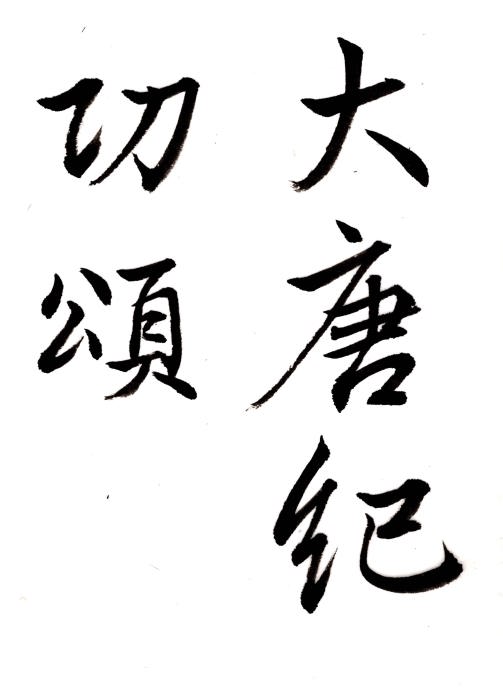 大唐紀
功頌